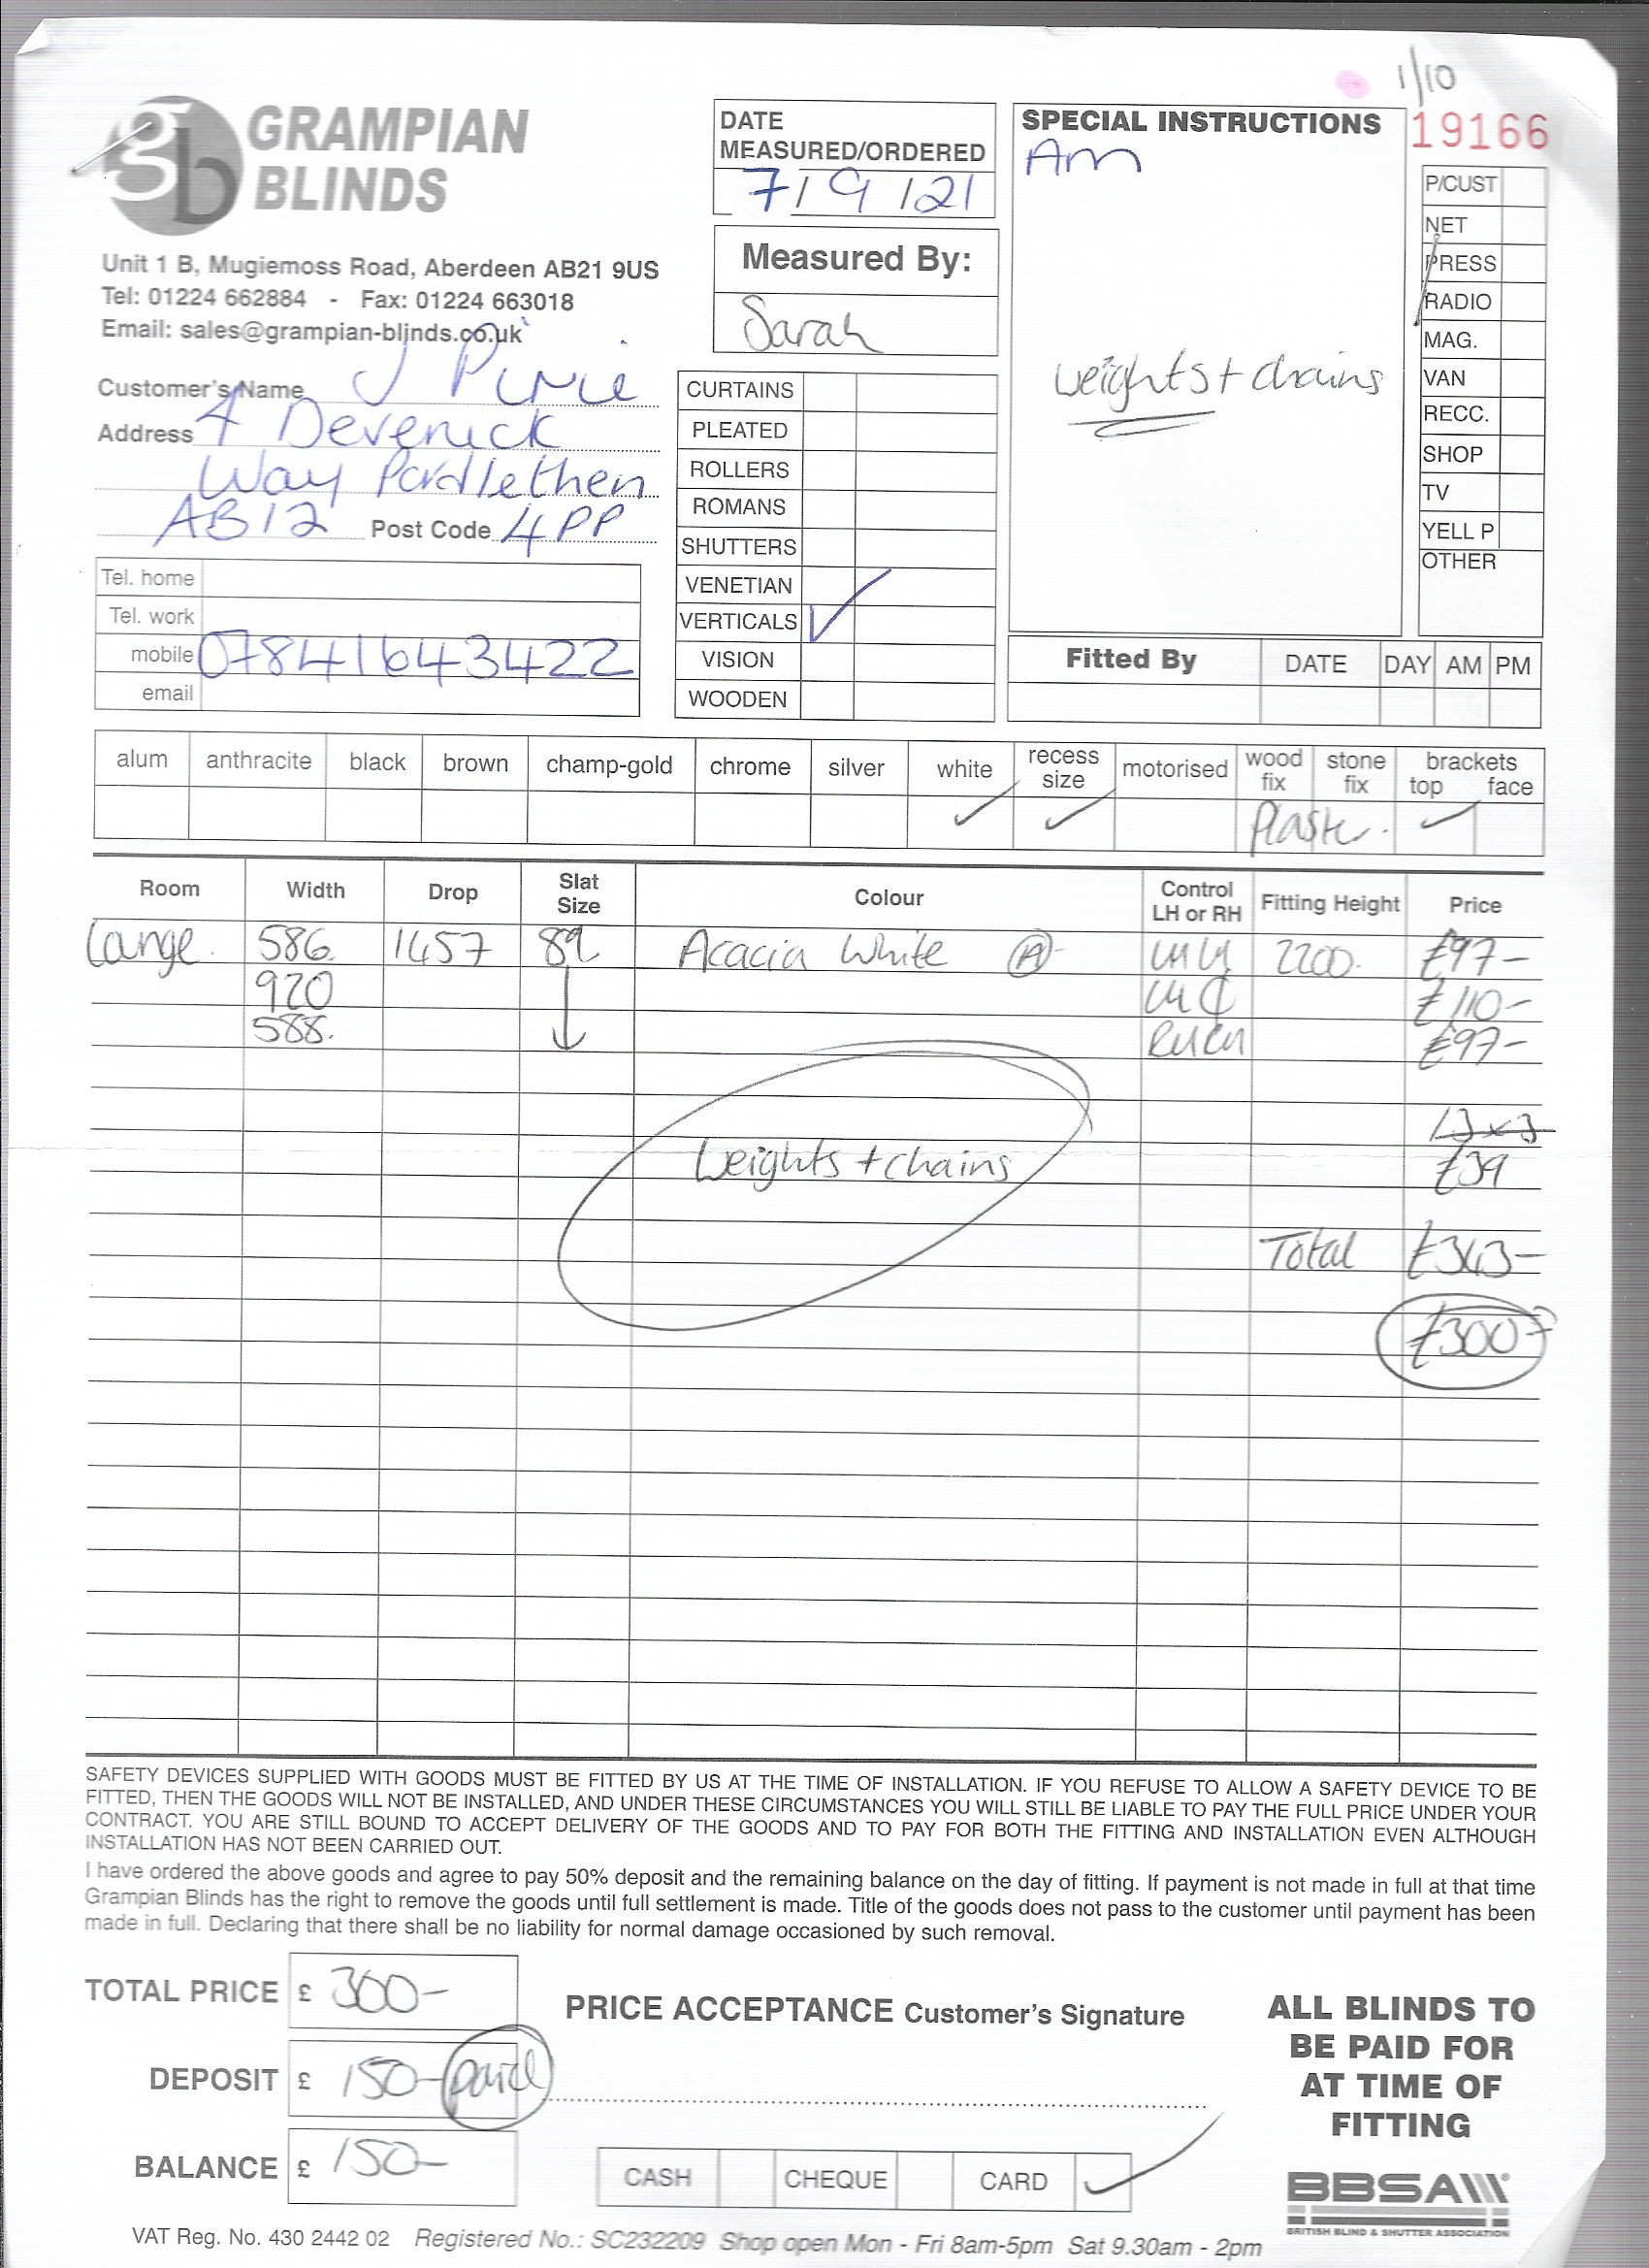 1/10
GRAMPIAN
BLINDS
Unit 1 B, Mugiemoss Road, Aberdeen AB21 9US
Tel: 01224 662884 - Fax: 01224 663018
Email: sales@grampian-blinds.co.uk
Customer's Name J Pirie
Address 4 Devenick
Way Portlethen
AB12 Post Code 4PP
Tel. home
Tel. work
mobile 07841643422
email
DATE
MEASURED/ORDERED
7/9/21
Measured By:
Sarah
CURTAINS
PLEATED
ROLLERS
ROMANS
SHUTTERS
VENETIAN
VERTICALS ✓
VISION
WOODEN
SPECIAL INSTRUCTIONS
Am
weights + chains
19166
P/CUST
NET
PRESS
RADIO
MAG.
VAN
RECC.
SHOP
TV
YELL P
OTHER
Fitted By DATE DAY AM PM
alum anthracite black brown champ-gold chrome silver white recess size motorised wood fix stone fix brackets top face
✓ ✓ Plaster. ✓
Room Width Drop Slat Size Colour Control LH or RH Fitting Height Price
Lounge. 586 1457 89 Acacia White A 2200. £97-
920 £110-
588. £97-
13x3
weights + chains £39
Total £343-
£300-
SAFETY DEVICES SUPPLIED WITH GOODS MUST BE FITTED BY US AT THE TIME OF INSTALLATION. IF YOU REFUSE TO ALLOW A SAFETY DEVICE TO BE
FITTED, THEN THE GOODS WILL NOT BE INSTALLED, AND UNDER THESE CIRCUMSTANCES YOU WILL STILL BE LIABLE TO PAY THE FULL PRICE UNDER YOUR
CONTRACT. YOU ARE STILL BOUND TO ACCEPT DELIVERY OF THE GOODS AND TO PAY FOR BOTH THE FITTING AND INSTALLATION EVEN ALTHOUGH
INSTALLATION HAS NOT BEEN CARRIED OUT.
I have ordered the above goods and agree to pay 50% deposit and the remaining balance on the day of fitting. If payment is not made in full at that time
Grampian Blinds has the right to remove the goods until full settlement is made. Title of the goods does not pass to the customer until payment has been
made in full. Declaring that there shall be no liability for normal damage occasioned by such removal.
TOTAL PRICE £ 300-
DEPOSIT £ 150- paid
BALANCE £ 150-
PRICE ACCEPTANCE Customer's Signature
CASH CHEQUE CARD ✓
ALL BLINDS TO
BE PAID FOR
AT TIME OF
FITTING
BBSA
BRITISH BLIND & SHUTTER ASSOCIATION
VAT Reg. No. 430 2442 02 Registered No.: SC232209 Shop open Mon - Fri 8am-5pm Sat 9.30am - 2pm